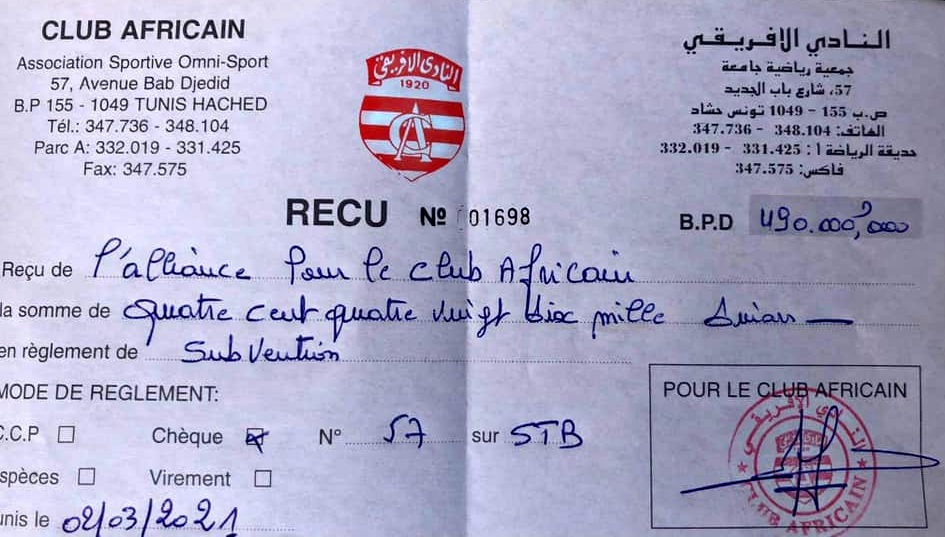 CLUB AFRICAIN
Association Sportive Omni-Sport
57, Avenue Bab Djedid
B.P 155 - 1049 TUNIS HACHED
Tél.: 347.736 - 348.104
Parc A: 332.019 - 331.425
Fax: 347.575
النادي الافريقي
1920
CA
النادي الافريقي
جمعية رياضية جامعة
57، شارع باب الجديد
ص.ب 155 - 1049 تونس حشاد
الهاتف: 348.104 - 347.736
حديقة الرياضة أ : 331.425 - 332.019
فاكس: 347.575
RECU Nº 01698
B.P.D 490.000,000
Reçu de l'alliance pour le club Africain
la somme de Quatre cent quatre vingt dix mille Dinars
en règlement de Subvention
MODE DE REGLEMENT:
C.C.P Chèque N° 57 sur STB
spèces Virement
unis le 02/03/2021
POUR LE CLUB AFRICAIN
النادي الافريقي
CLUB AFRICAIN